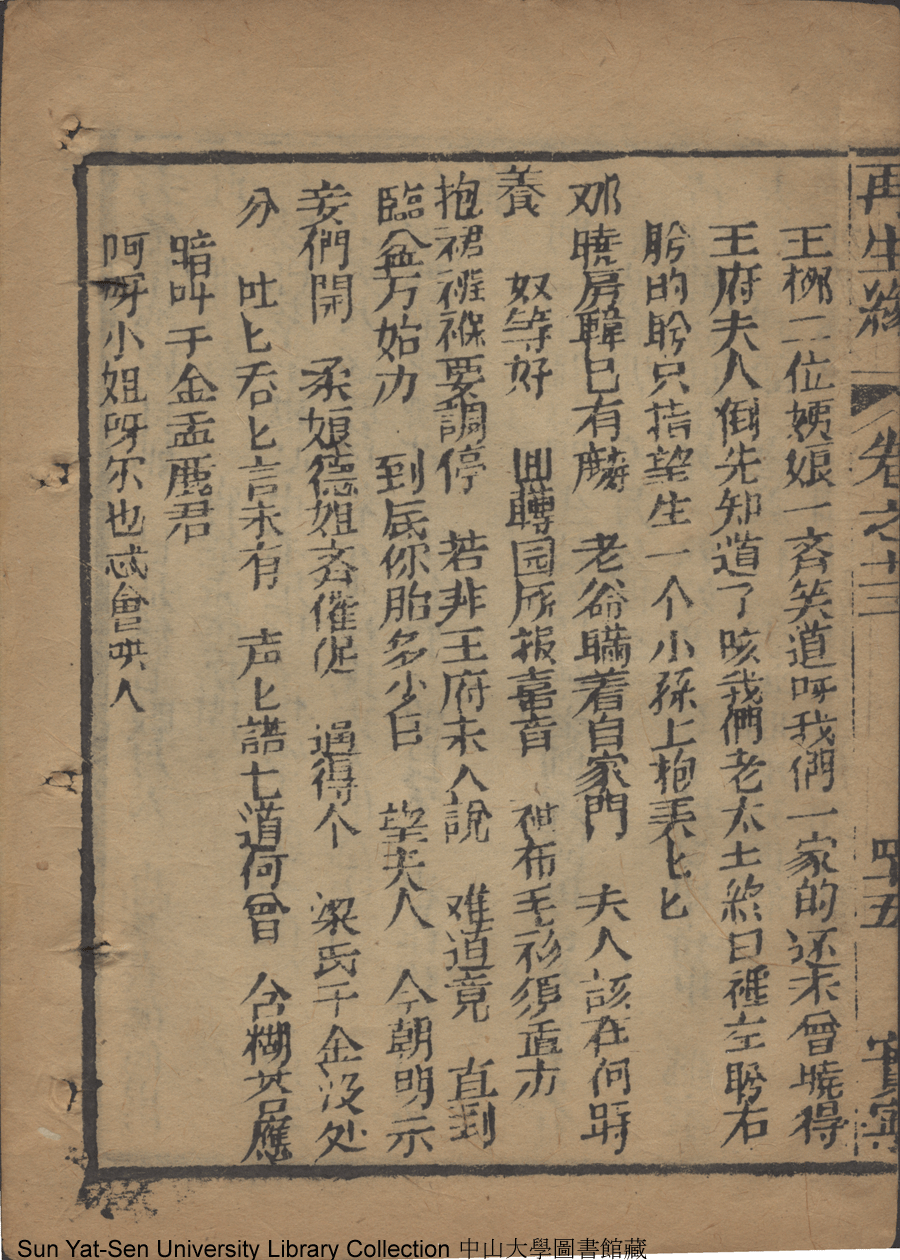 再生緣 卷之十三 四十五
王柳二位姨娘一齐笑道呀我們一家的还未曾曉得
王府夫人倒先知道了咳我們老太土終日裡左盼右
盼的盼只指望生一个小孫上抱来匕匕
邓曉房韓已有麟 老爺瞞着自家門 夫人該在何时
養 奴等好 囬轉园所报喜音 袖布毛衫須置办
抱裙裢褓要調停 若非王府未人說 难道竟 直到
臨盆方始办 到底你胎多少日 望夫人 今朝明示
妾們開 柔娘德姐斉催促 逼得个 梁氏千金没处
分 吐匕吞匕言未有 声匕諾七道何曾 含糊荅應
暗叫于金孟麗君
阿呀小姐呀尔也忒會哄人
Sun Yat-Sen University Library Collection 中山大學圖書館藏